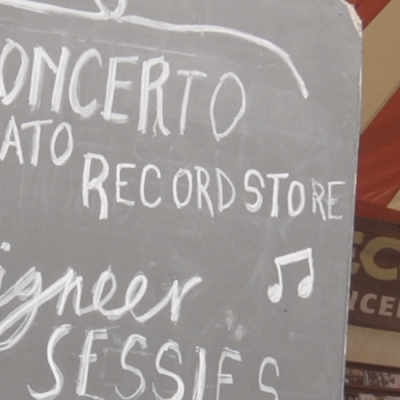 ONCERTO
ATO
RECORD STORE
igneer
SESSIES
EC
NCE